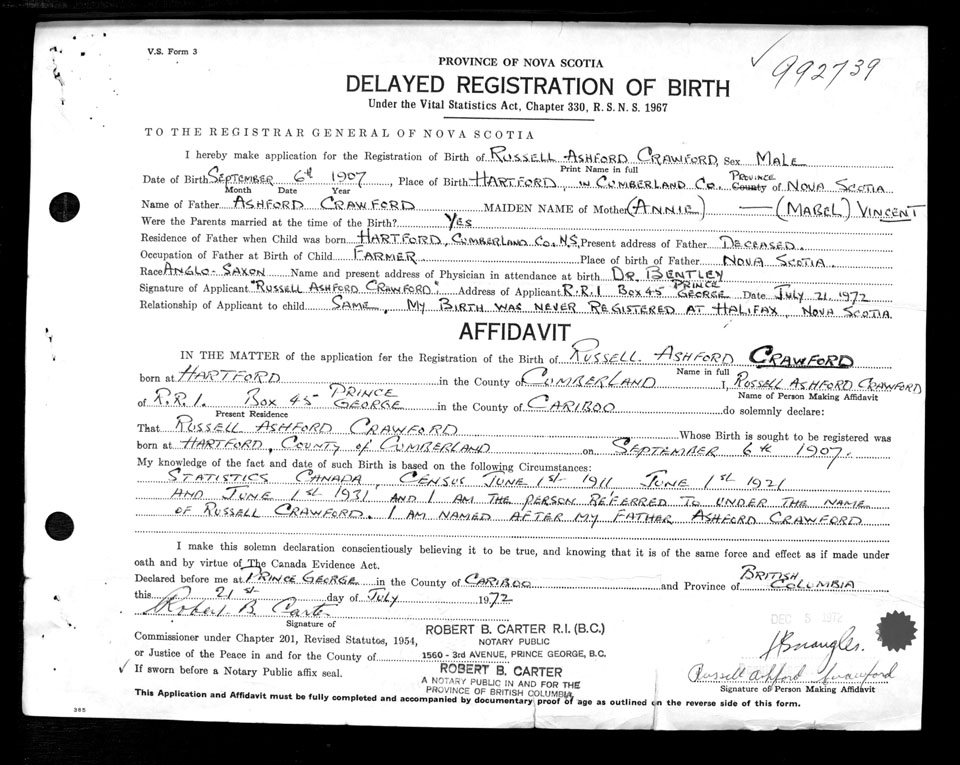 V.S. Form 3
992739
PROVINCE OF NOVA SCOTIA
DELAYED REGISTRATION OF BIRTH
Under the Vital Statistics Act, Chapter 330, R.S.N.S. 1967
TO THE REGISTRAR GENERAL OF NOVA SCOTIA
I hereby make application for the Registration of Birth of RUSSELL ASHFORD CRAWFORD, Sex MALE
Print Name in full
Date of Birth SEPTEMBER 6th 1907, Place of Birth HARTFORD, IN CUMBERLAND CO. PROVINCE County of NOVA SCOTIA
Month Date Year
Name of Father ASHFORD CRAWFORD MAIDEN NAME of Mother (ANNIE) — (MABEL) VINCENT
Were the Parents married at the time of the Birth? YES
Residence of Father when Child was born HARTFORD, CUMBERLAND CO. N.S. Present address of Father DECEASED.
Occupation of Father at Birth of Child FARMER Place of birth of Father NOVA SCOTIA.
Race ANGLO-SAXON Name and present address of Physician in attendance at birth DR. BENTLEY
Signature of Applicant "RUSSELL ASHFORD CRAWFORD". Address of Applicant R.R.1 BOX 45 PRINCE GEORGE Date JULY 21, 1972
Relationship of Applicant to child SAME, MY BIRTH WAS NEVER REGISTERED AT HALIFAX, NOVA SCOTIA.
AFFIDAVIT
IN THE MATTER of the application for the Registration of the Birth of RUSSELL ASHFORD CRAWFORD
Name in full
born at HARTFORD in the County of CUMBERLAND I, RUSSELL ASHFORD CRAWFORD
Name of Person Making Affidavit
of R.R.1. BOX 45 PRINCE GEORGE in the County of CARIBOO do solemnly declare:
Present Residence
That RUSSELL ASHFORD CRAWFORD Whose Birth is sought to be registered was
born at HARTFORD, COUNTY of CUMBERLAND on SEPTEMBER 6th 1907.
My knowledge of the fact and date of such Birth is based on the following Circumstances:
STATISTICS CANADA, CENSUS JUNE 1st 1911 JUNE 1st 1921
AND JUNE 1st 1931 AND I AM THE PERSON REFERRED TO UNDER THE NAME
OF RUSSELL CRAWFORD. I AM NAMED AFTER MY FATHER ASHFORD CRAWFORD
I make this solemn declaration conscientiously believing it to be true, and knowing that it is of the same force and effect as if made under
oath and by virtue of The Canada Evidence Act.
Declared before me at PRINCE GEORGE in the County of CARIBOO and Province of BRITISH COLUMBIA
this 21st day of JULY 1972
DEC 5 1972
Robert B. Carter
Signature of
ROBERT B. CARTER R.I. (B.C.)
Commissioner under Chapter 201, Revised Statutes, 1954,
NOTARY PUBLIC
or Justice of the Peace in and for the County of
1560 - 3RD AVENUE, PRINCE GEORGE, B.C.
✓ If sworn before a Notary Public affix seal.
ROBERT B. CARTER
A NOTARY PUBLIC IN AND FOR THE
PROVINCE OF BRITISH COLUMBIA
Russell Ashford Crawford
Signature of Person Making Affidavit
This Application and Affidavit must be fully completed and accompanied by documentary proof of age as outlined on the reverse side of this form.
385